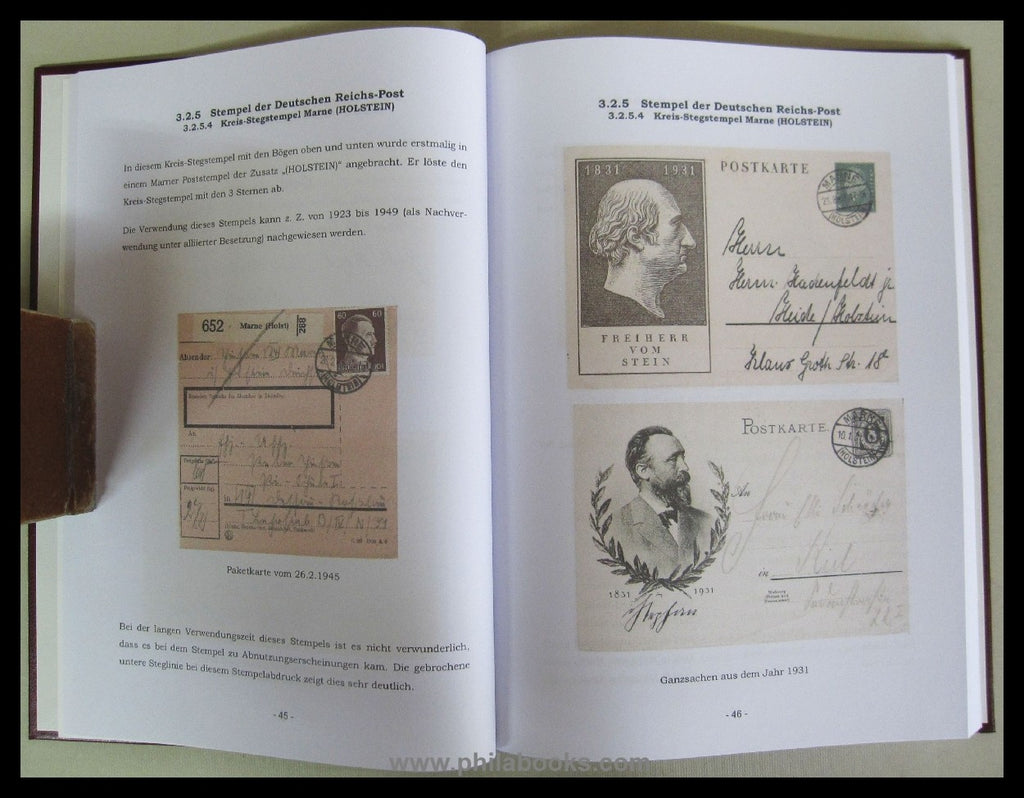 3.2.5 Stempel der Deutschen Reichs-Post
3.2.5.4 Kreis-Stegstempel Marne (HOLSTEIN)
In diesem Kreis-Stegstempel mit den Bögen oben und unten wurde erstmalig in
einem Marner Poststempel der Zusatz „(HOLSTEIN)" angebracht. Er löste den
Kreis-Stegstempel mit den 3 Sternen ab.
Die Verwendung dieses Stempels kann z. Z. von 1923 bis 1949 (als Nachver-
wendung unter alliierter Besetzung) nachgewiesen werden.
652 Marne (Holst) 268
60 60
Absender:
MARNE
(HOLSTEIN)
An
Paketkarte vom 26.2.1945
Bei der langen Verwendungszeit dieses Stempels ist es nicht verwunderlich,
dass es bei dem Stempel zu Abnutzungserscheinungen kam. Die gebrochene
untere Steglinie bei diesem Stempelabdruck zeigt dies sehr deutlich.
- 45 -
3.2.5 Stempel der Deutschen Reichs-Post
3.2.5.4 Kreis-Stegstempel Marne (HOLSTEIN)
1831 1931
POSTKARTE
MARNE
(HOLSTEIN)
Herrn
Herm. Hadenfeldt jr
Heide / Holstein
Klaus Groth Str. 18
FREIHERR
VOM
STEIN
POSTKARTE
MARNE
10.1
(HOLSTEIN)
6
An
in Kiel
1831 1931
Stephan
Ganzsachen aus dem Jahr 1931
- 46 -
www.philabooks.com